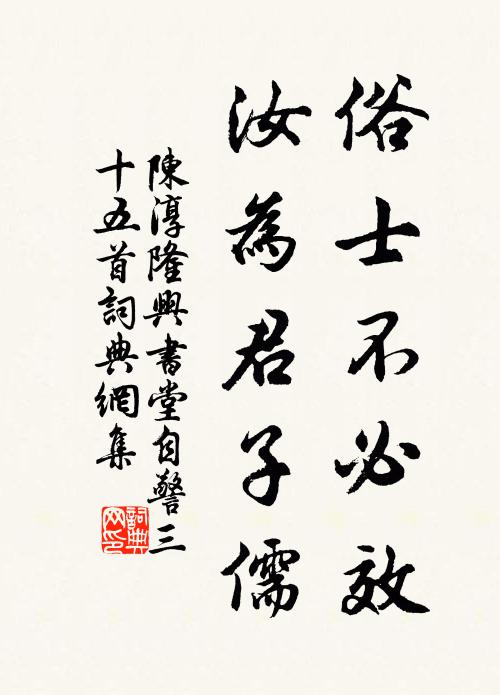 俗士不必效
汝為君子儒
陳淳隆興書堂自警三
十五首詞典網集
詞典网印